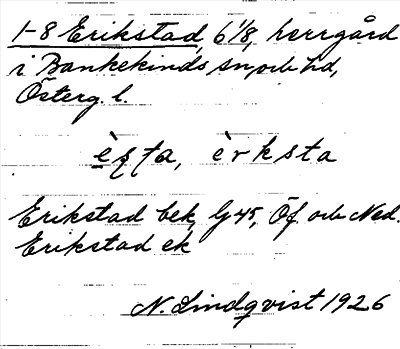 1-8 Erikstad, 6 1/8, herrgård
i Bankekinds sn, och hd,
Österg. l.
èʃta, èrksta
Erikstad bek, G 45, Öf. och Ned.
Erikstad ek
N. Lindqvist 1926